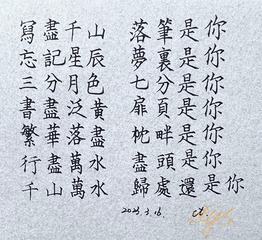 寫盡千山 落筆是你
忘記星辰 夢裏是你
三分月色 七分是你
書盡泛黃 扉頁是你
繁華落盡 枕畔是你
行盡萬水 盡頭是你
千山萬水 歸處還是你